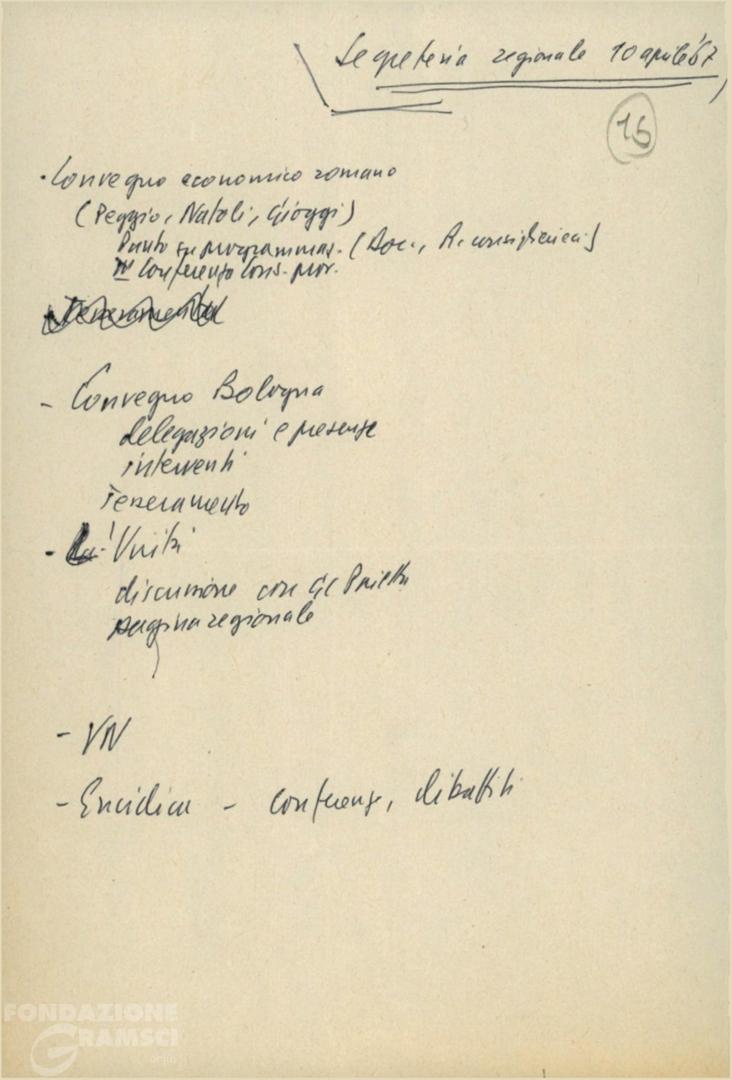 Segreteria regionale 10 aprile '67
16
· Convegno economico romano
(Peggio, Natoli, Gioggi)
Punto su programmaz. (Doc.,
IV Conferenza Cons. prov.
- Convegno Bologna
delegazioni e presenze
interventi
Tesseramento
- Unità
discussione con
pagina regionale
- VN
- Enciclica - conferenze, dibattiti
FONDAZIONE
GRAMSCI